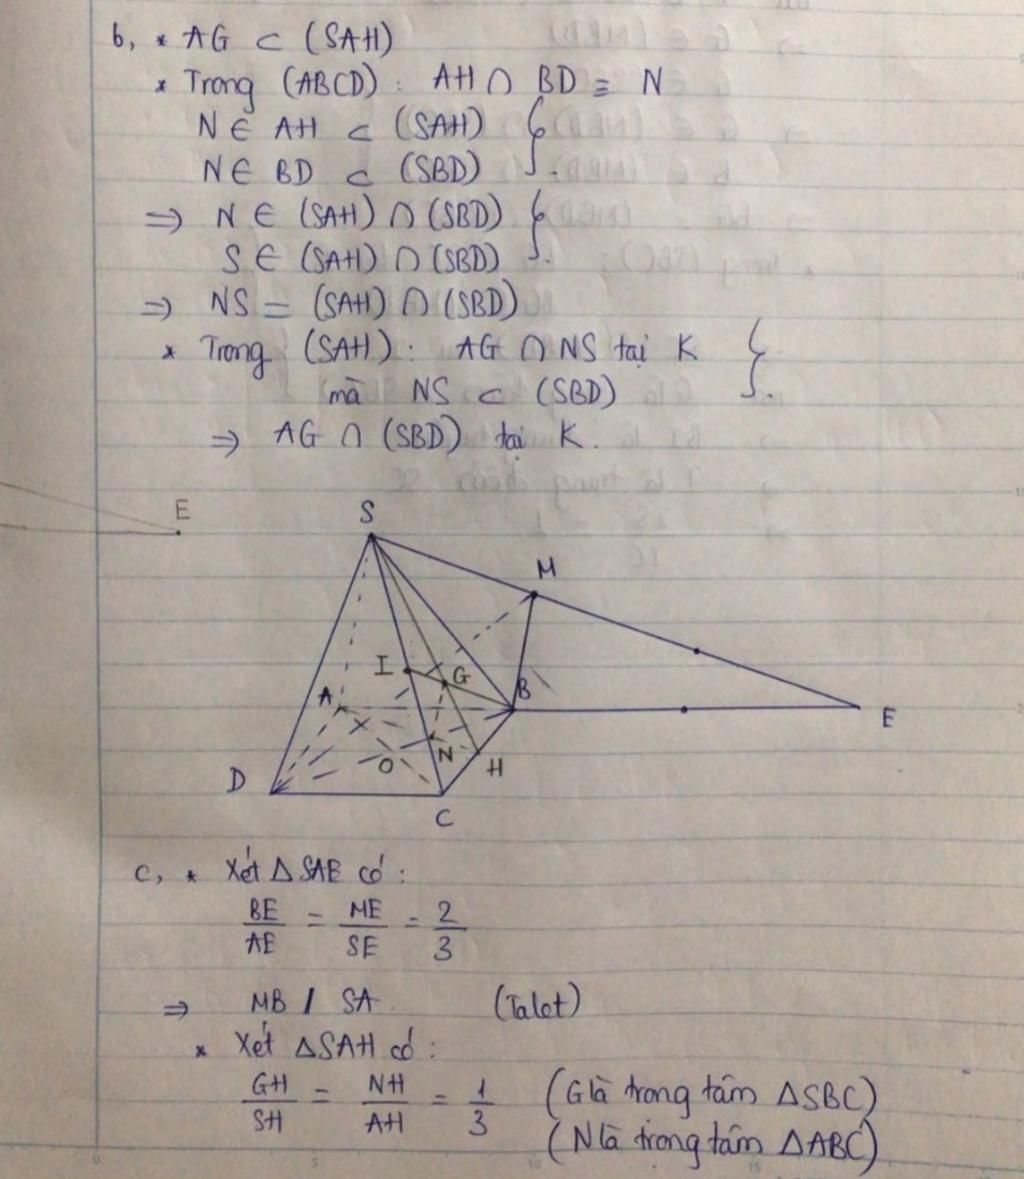 b, * AG ⊂ (SAH)
* Trong (ABCD): AH ∩ BD ≡ N
N ∈ AH ⊂ (SAH)
N ∈ BD ⊂ (SBD)
⇒ N ∈ (SAH) ∩ (SBD)
S ∈ (SAH) ∩ (SBD)
⇒ NS = (SAH) ∩ (SBD)
* Trong (SAH): AG ∩ NS tại K
mà NS ⊂ (SBD)
⇒ AG ∩ (SBD) tại K.
E
S
M
I
G
A
B
E
N
O
H
D
C
c, * Xét Δ SAE có:
BE/AE = ME/SE = 2/3
⇒ MB // SA. (Talet)
* Xét ΔSAH có:
GH/SH = NH/AH = 1/3 (G là trọng tâm ΔSBC)
(N là trọng tâm ΔABC)